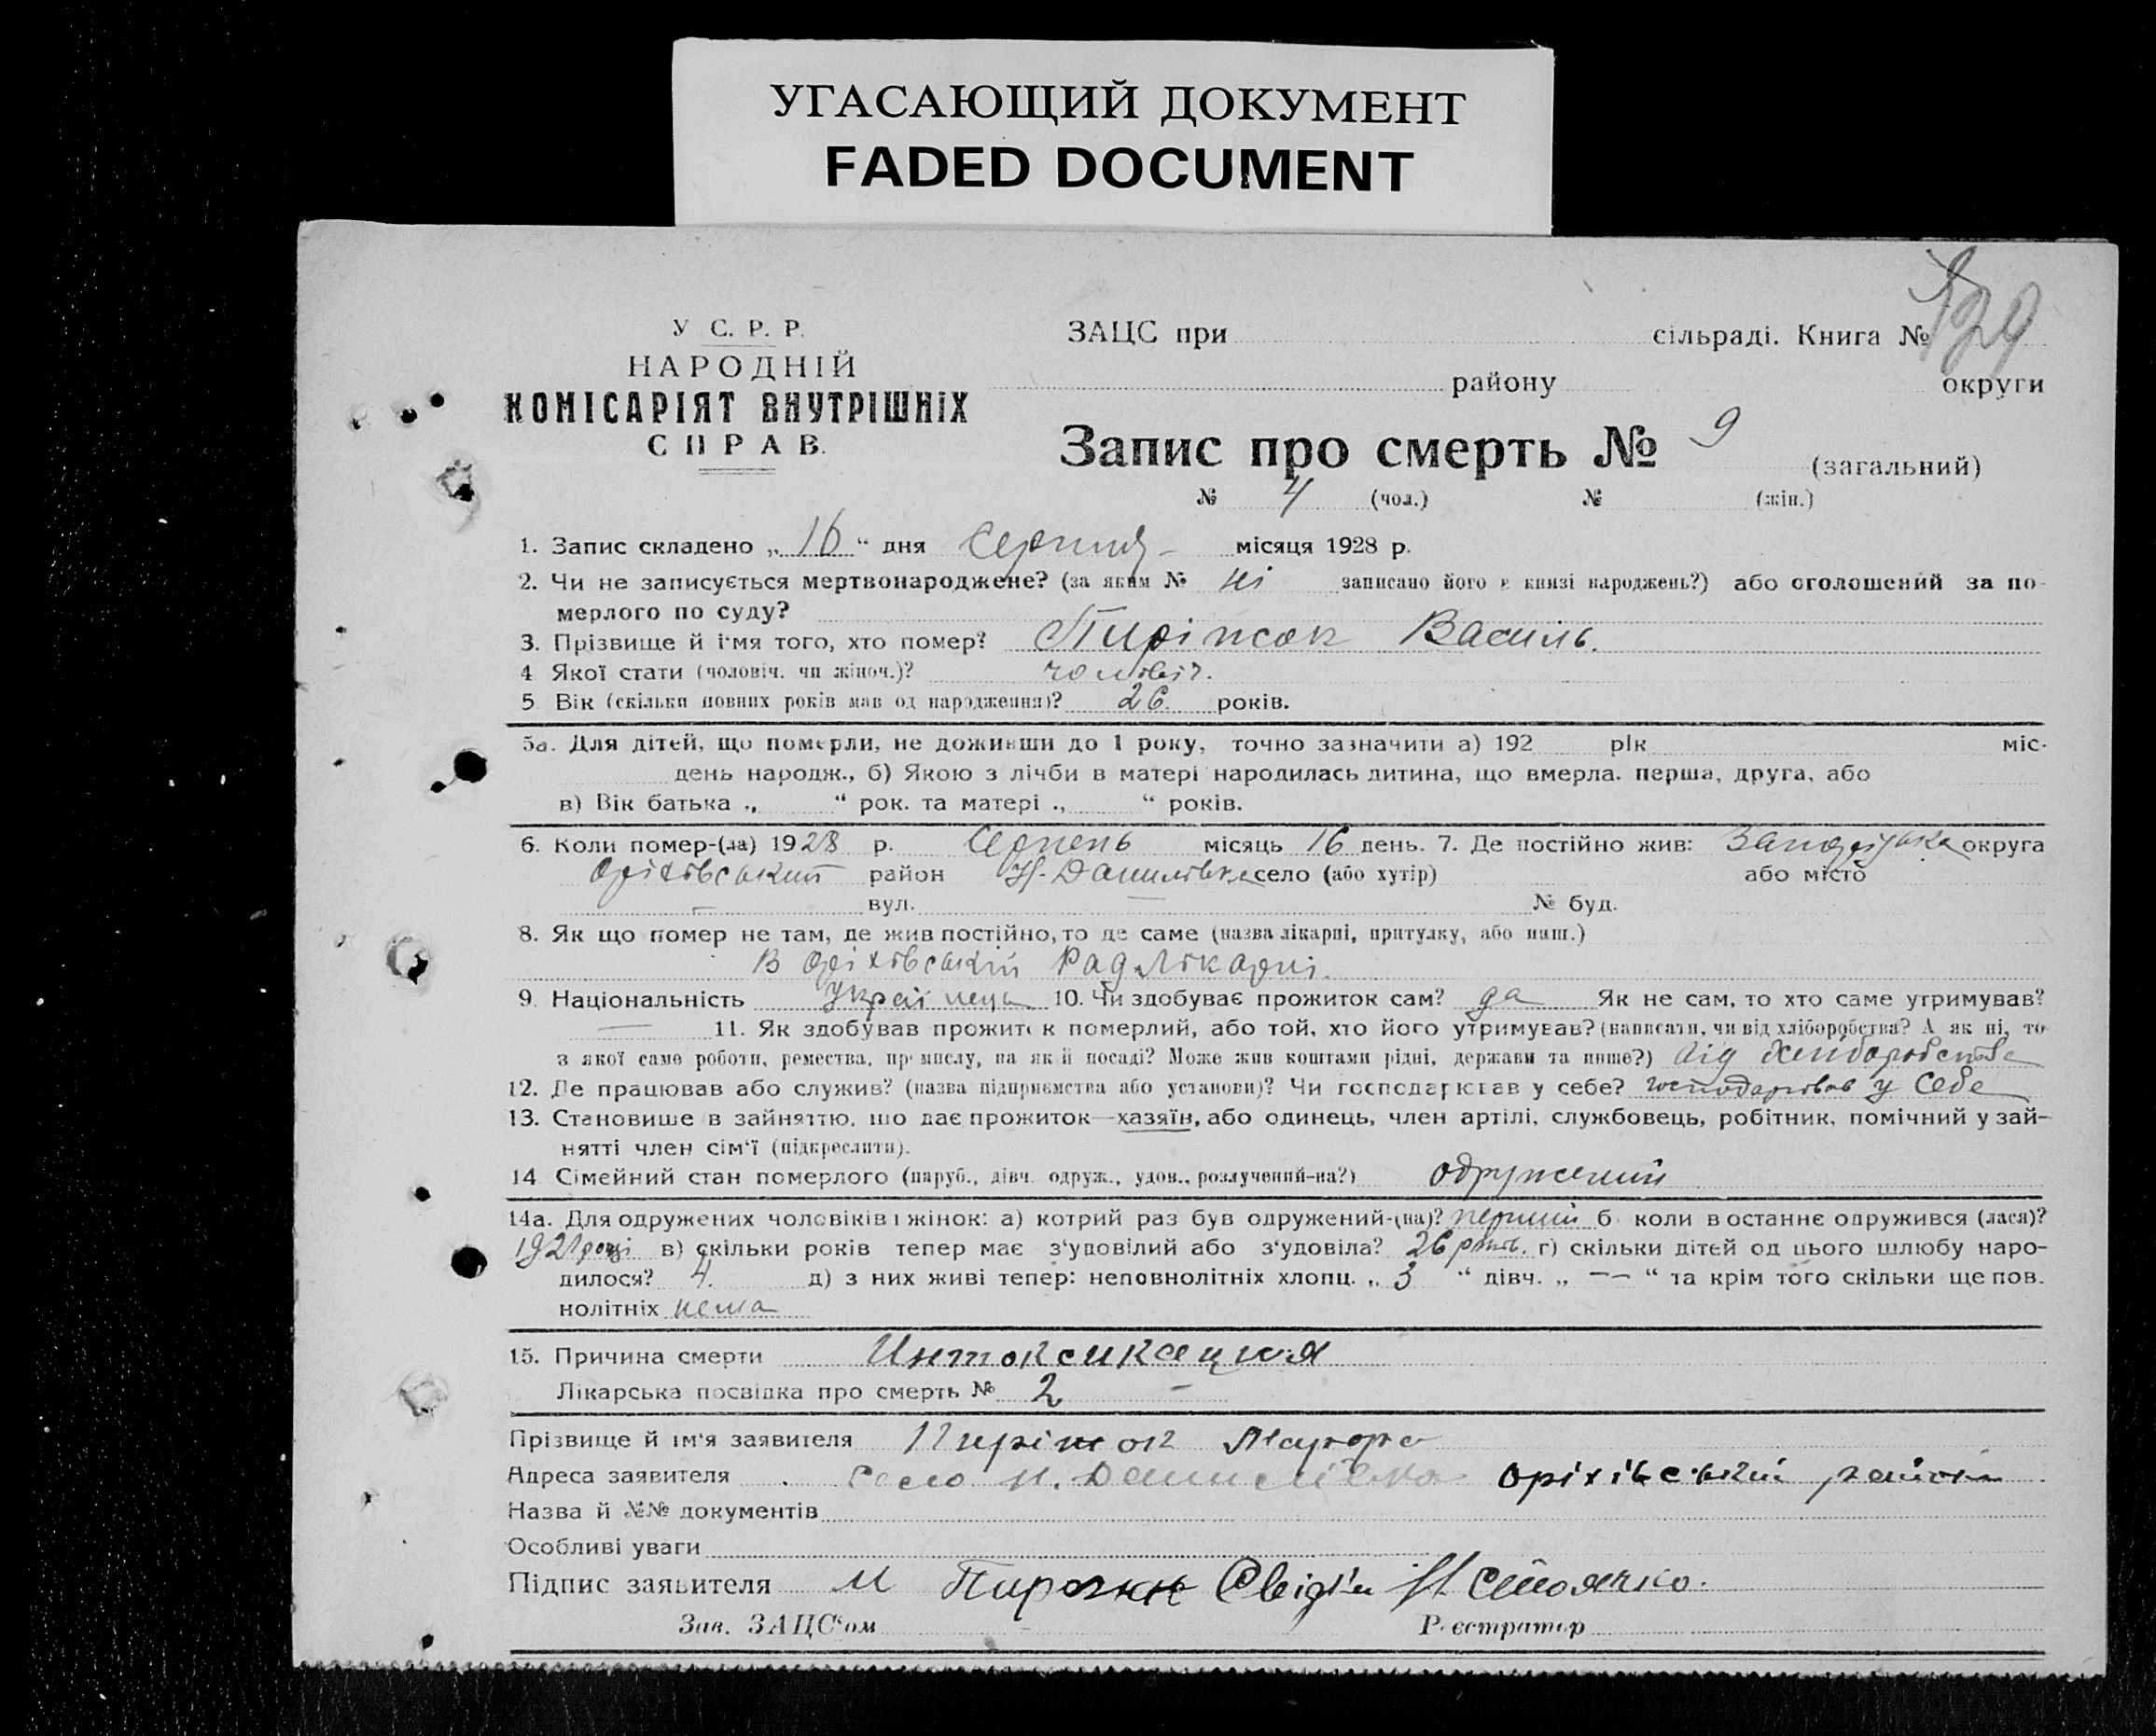 УГАСАЮЩИЙ ДОКУМЕНТ
FADED DOCUMENT
У С. Р. Р.
НАРОДНІЙ
КОМІСАРІЯТ ВНУТРІШНІХ
СПРАВ.
ЗАЦС при сільраді. Книга №
району округи
Запис про смерть № 9 (загальний)
№ 4 (чол.) № (жін.)
1. Запис складено „ 16 “ дня Серпня місяця 1928 р.
2. Чи не записується мертвонароджене? (за яким № ні записано його в книзі народжень?) або оголошений за по-
мерлого по суду?
3. Прізвище й ім'я того, хто помер? Пиріжок Василь.
4 Якої стати (чоловіч. чи жіноч.)? чоловіч.
5 Вік (скільки повних років мав од народження)? 26 років.
5а. Для дітей, що померли, не доживши до 1 року, точно зазначити а) 192 рік міс.
день народж., б) Якою з лічби в матері народилась дитина, що вмерла. перша, друга, або
в) Вік батька „ “ рок. та матері „ “ років.
6. Коли помер-(ла) 1928 р. Серпень місяць 16 день. 7. Де постійно жив: округа
Оріхівський район Н-Данилівка село (або хутір) або місто
— вул. — № буд.
8. Як що помер не там, де жив постійно, то де саме (назва лікарні, притулку, або инш.)
В Оріхівській Рад.Лікарні.
9. Національність 10. Чи здобуває прожиток сам? да Як не сам, то хто саме утримував?
— 11. Як здобував прожиток померлий, або той, хто його утримував? (написати, чи від хліборобства? А як ні, то
з якої само роботи, ремества, промислу, на якій посаді? Може жив коштами рідні, держави та инше?) від хліборобства
12. Де працював або служив? (назва підприємства або установи)? Чи господарював у себе? господарював у себе
13. Становище в зайняттю, що дає прожиток—хазяїн, або одинець, член артілі, службовець, робітник, помічний у зай-
нятті член сім'ї (підкреслити).
14 Сімейний стан померлого (паруб., дівч. одруж., удов., розлучений-на?) одружений
14а. Для одружених чоловіків і жінок: а) котрий раз був одружений-(на)? перший б коли в останнє одружився (лася)?
1921 році в) скільки років тепер має з'удовілий або з'удовіла? 26 років. г) скільки дітей од цього шлюбу наро-
дилося? 4. д) з них живі тепер: неповнолітніх хлопц. „ 3 “ дівч. „ — “ та крім того скільки ще пов.
нолітніх нема
15. Причина смерти Интоксикация
Лікарська посвідка про смерть № 2 —
Прізвище й ім'я заявителя Пиріжок
Адреса заявителя село Н. Данилівка Оріхівський район
Назва й №№ документів
Особливі уваги
Підпис заявителя М
Зав. ЗАЦС'ом Реєстратор